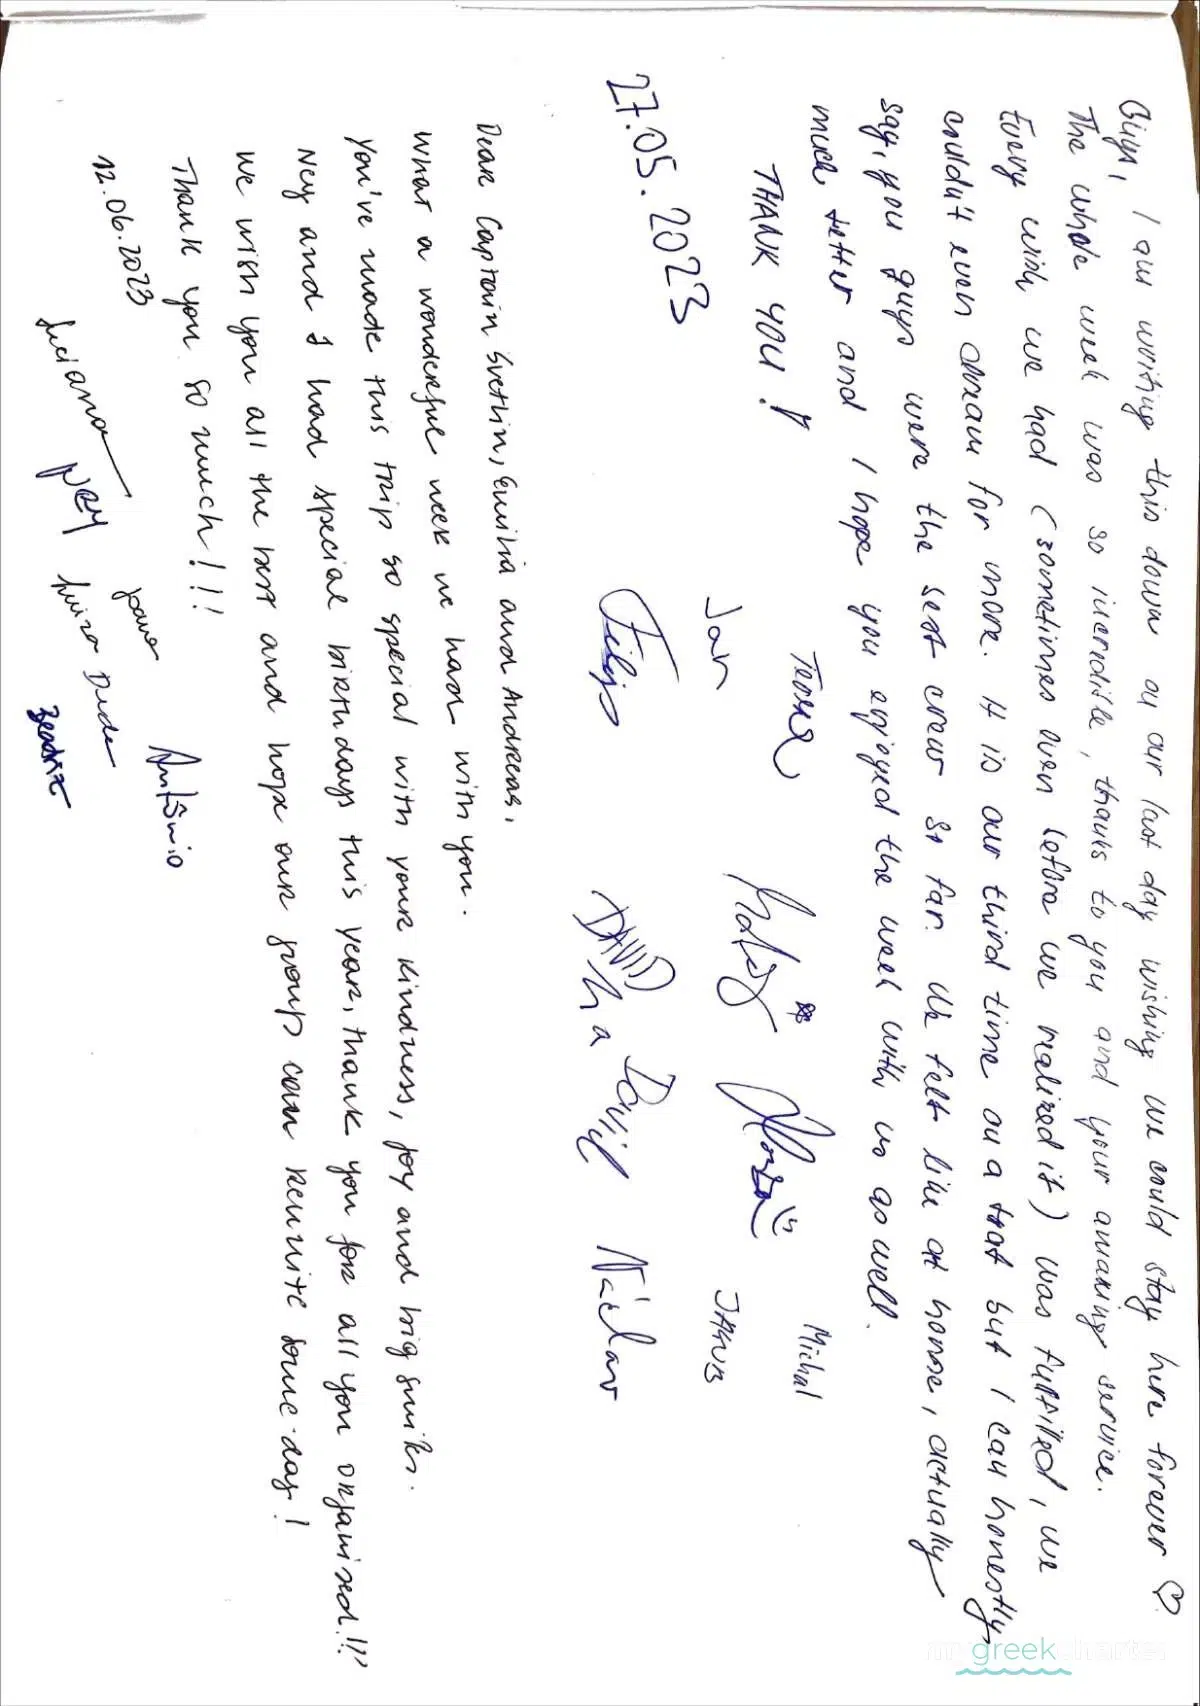 Guys, I am writing this down on our last day wishing we could stay here forever ♡.
The whole week was so incredible, thanks to you and your amazing service.
Every wish we had (sometimes even before we realized it) was fulfilled, we
couldn't even dream for more. It is our third time on a boat but I can honestly
say, you guys were the best crew so far. We felt like at home, actually
much better and I hope you enjoyed the week with us as well.
THANK YOU!
27.05.2023
Tereza
Michal
Jan
Matěj
Honza
JAKUB
Filip
DAVID
David
Václav
Dear Captain Svetlin, Emilia and Andreas,
What a wonderful week we had with you.
You've made this trip so special with your kindness, joy and big smiles.
Ney and I had special birthdays this year, thank you for all you organized!!!
We wish you all the best and hope our group can reunite some day!
Thank you so much!!!
12.06.2023
Luciana
Ney
Joana
Antônio
Luiza Dude
Beatriz
my greek charter